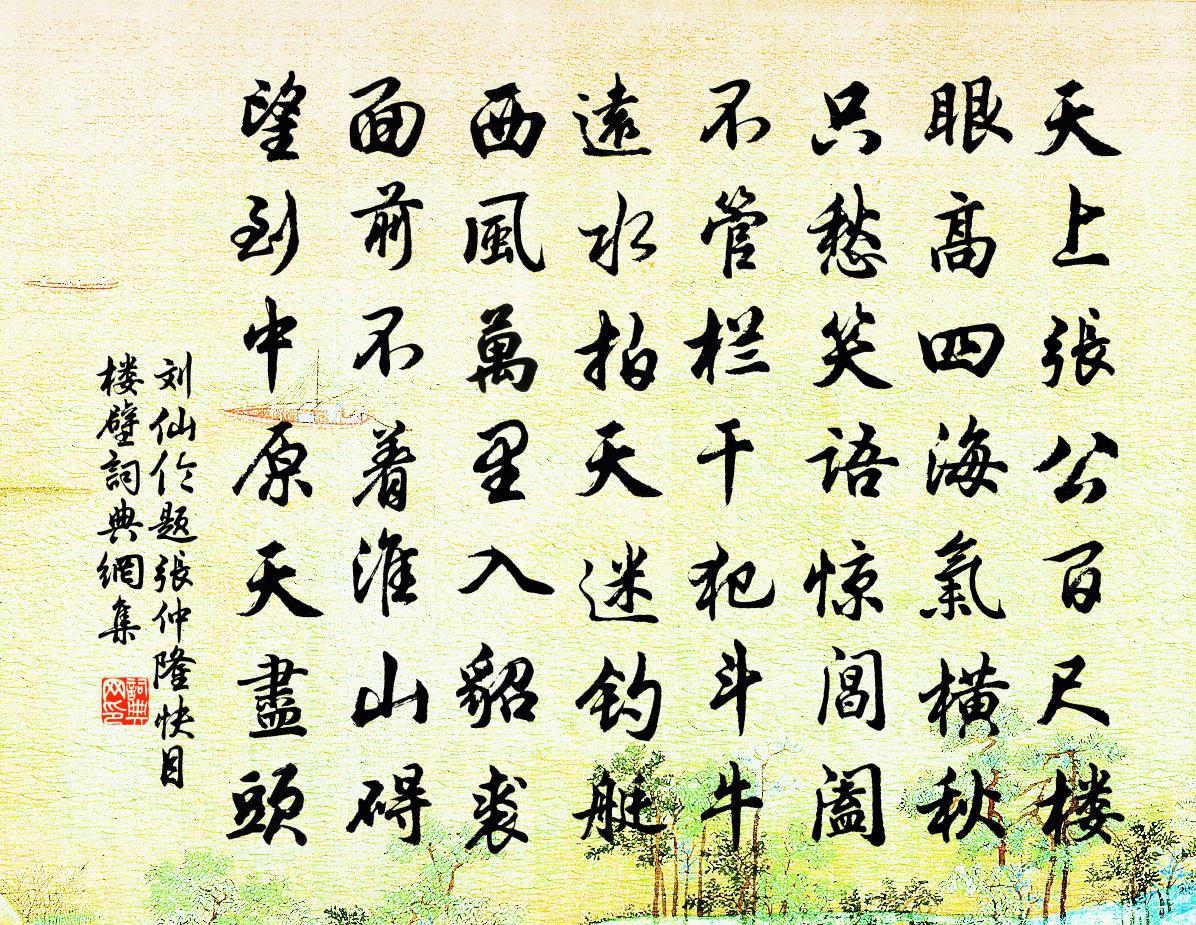 天上張公百尺楼
眼高四海氣横秋
只愁笑語惊閶阖
不管栏干犯斗牛
遠水拍天迷钓艇
西風萬里入貂裘
面前不着淮山碍
望到中原天盡頭
刘仙伦题張仲隆快目
楼壁詞典網集
詞典
网印